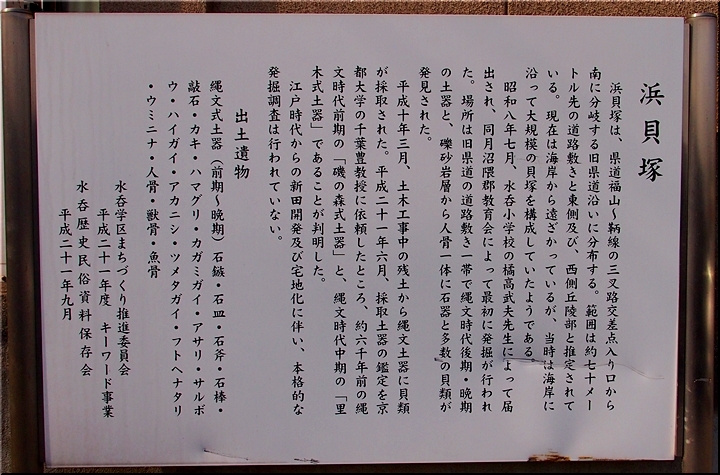 浜貝塚
浜貝塚は、県道福山～鞆線の三叉路交差点入り口から
南に分岐する旧県道沿いに分布する。範囲は約七十メー
トル先の道路敷きと東側及び、西側丘陵部と推定されて
いる。現在は海岸から遠ざかっているが、当時は海岸に
沿って大規模の貝塚を構成していたようである。
昭和八年七月、水呑小学校の橘高武夫先生によって届
出され、同月沼隈郡教育会によって最初に発掘が行われ
た。場所は旧県道の道路敷き一帯で縄文時代後期・晩期
の土器と、礫砂岩層から人骨一体に石器と多数の貝類が
発見された。
平成十年三月、土木工事中の残土から縄文土器に貝類
が採取された。平成二十一年六月、採取土器の鑑定を京
都大学の千葉豊教授に依頼したところ、約六千年前の縄
文時代前期の「磯の森式土器」と、縄文時代中期の「里
木式土器」であることが判明した。
江戸時代からの新田開発及び宅地化に伴い、本格的な
発掘調査は行われていない。
出土遺物
縄文式土器（前期～晩期）石鏃・石皿・石斧・石棒・
敲石・カキ・ハマグリ・カガミガイ・アサリ・サルボ
ウ・ハイガイ・アカニシ・ツメタガイ・フトヘナタリ
・ウミニナ・人骨・獣骨・魚骨
水呑学区まちづくり推進委員会
平成二十一年度 キーワード事業
水呑歴史民俗資料保存会
平成二十一年九月